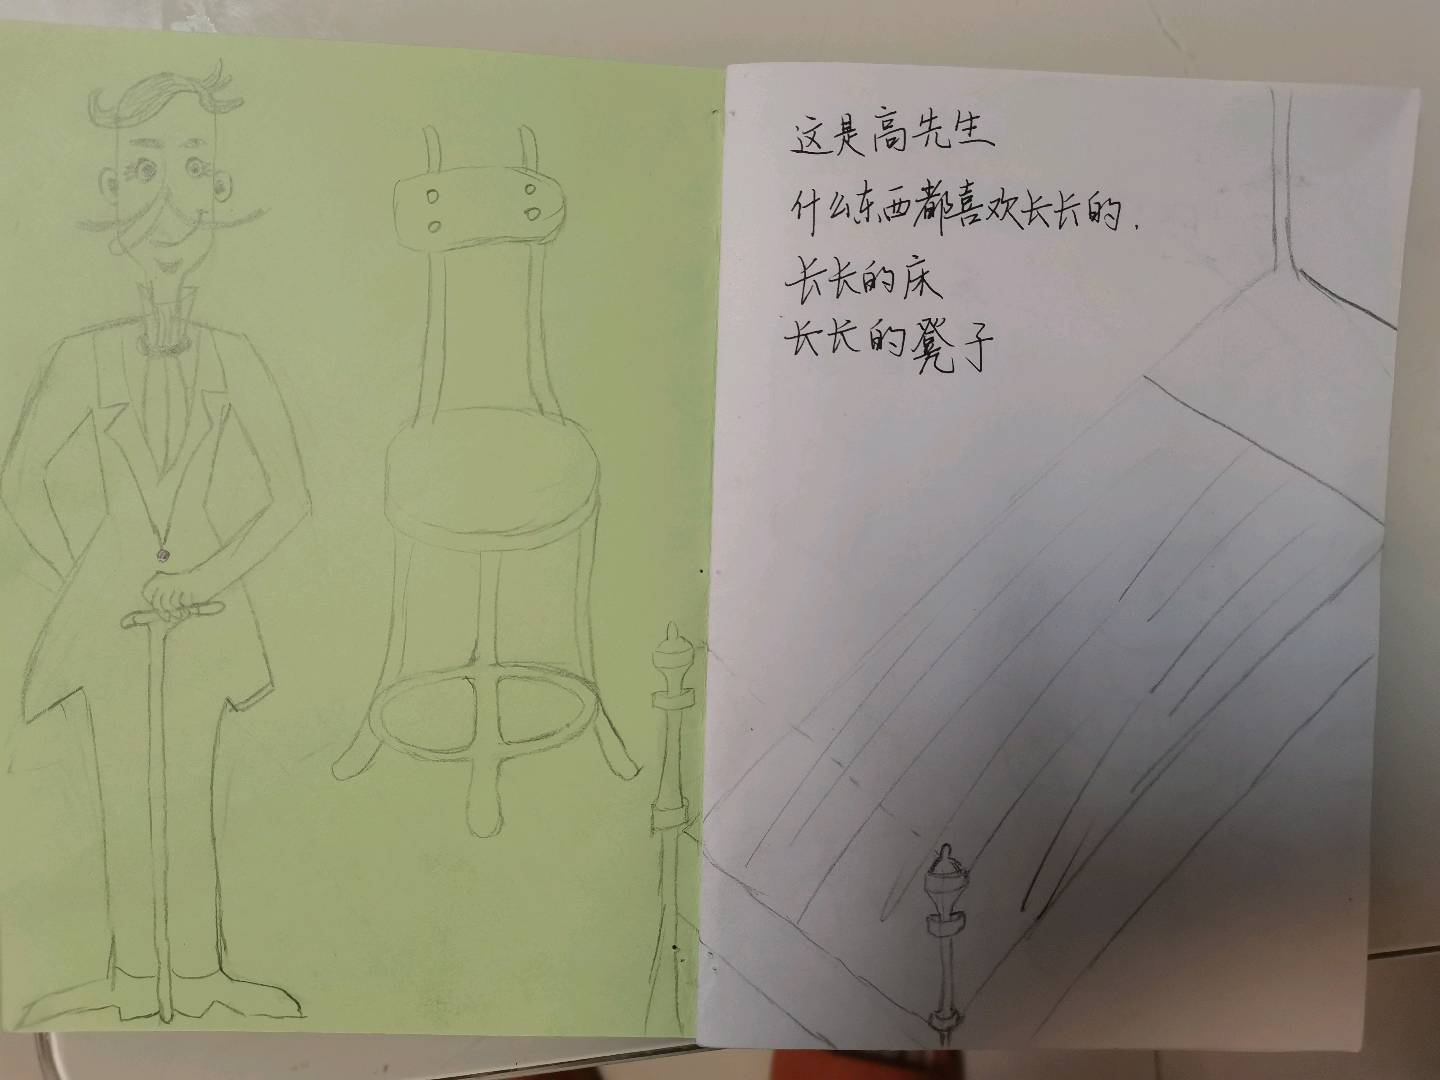 这是高先生
什么东西都喜欢长长的.
长长的床
长长的凳子